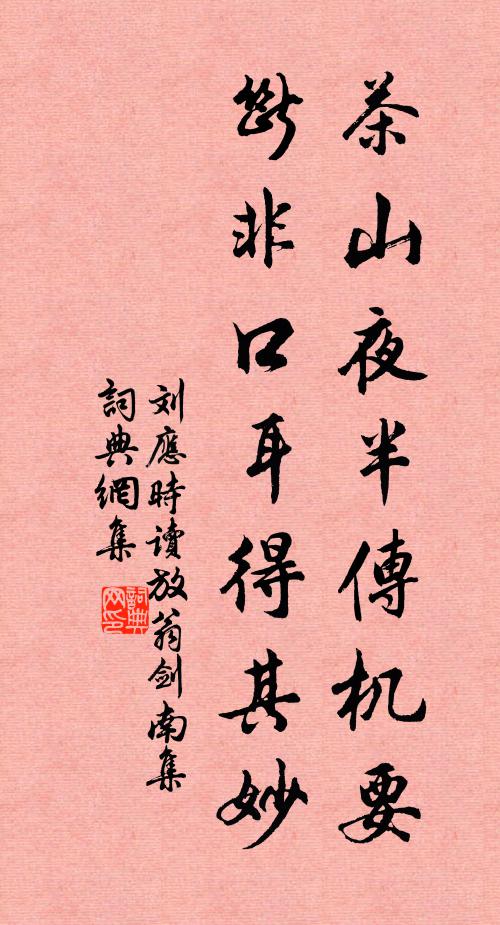 茶山夜半傳机要
斷非口耳得其妙
刘應時讀放翁劍南集
詞典網集
詞典网印